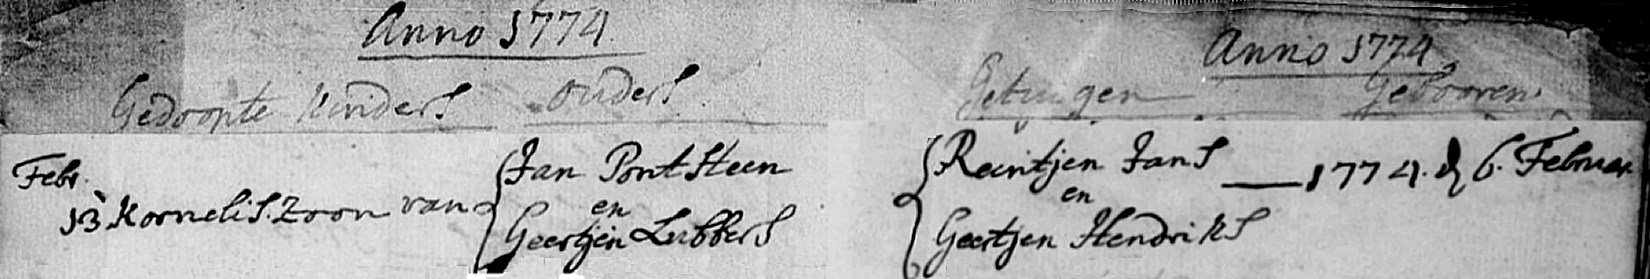 Anno 1774.
Gedoopte Kinders Ouders
Febr.
13 Kornelis. Zoon van
Jan Pont Steen
en
Geertjen Lubbers
Anno 1774
Getuigen Gebooren
Reintjen Jans — 1774. d 6. Februar.
en
Geertjen Hendriks